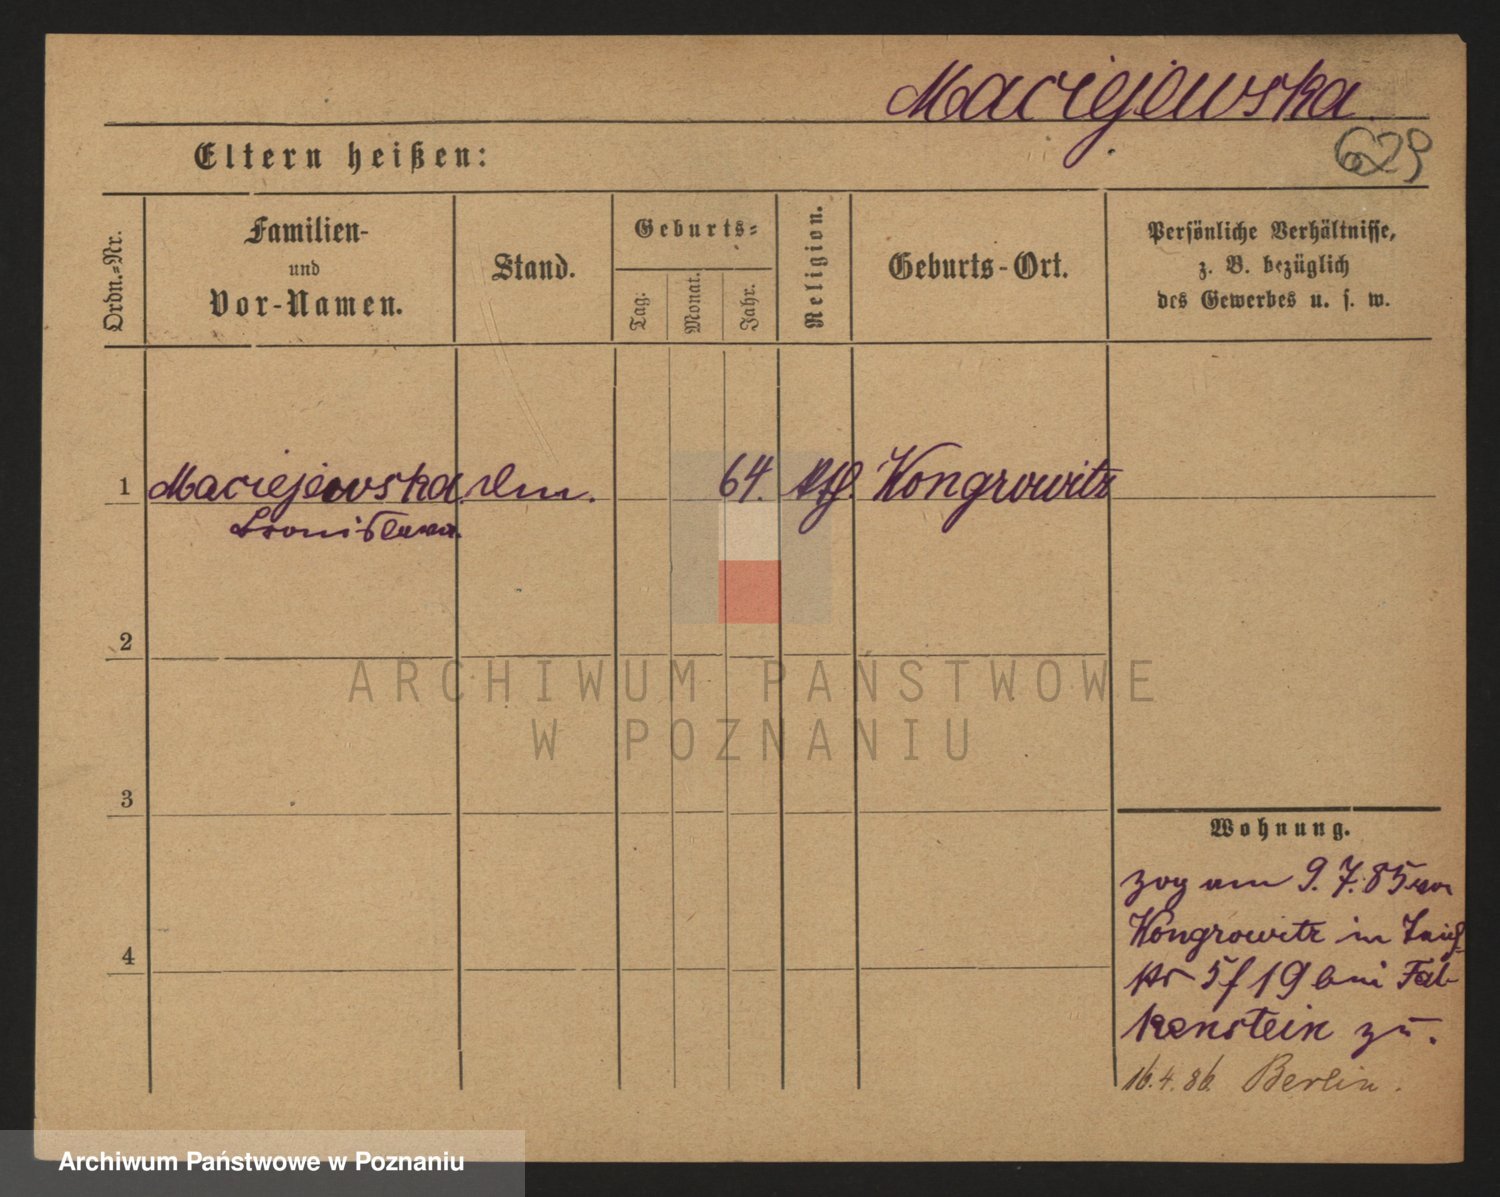 Maciejewska.
629
Eltern heißen:
Ordn.=Nr.
Familien-
und
Vor-Namen.
Stand.
Geburts=
Tag:
Monat.
Jahr.
Religion.
Geburts-Ort.
Persönliche Verhältnisse,
z. B. bezüglich
des Gewerbes u. s. w.
1 Maciejewska 64. kth. Wongrowitz
Bronislawa.
2
ARCHIWUM PAŃSTWOWE
W POZNANIU
3
Wohnung.
zog am 9.7.85 von
Wongrowitz in
5/19 bei Fal-
4
kenstein zu.
16.4.86. Berlin.
Archiwum Państwowe w Poznaniu